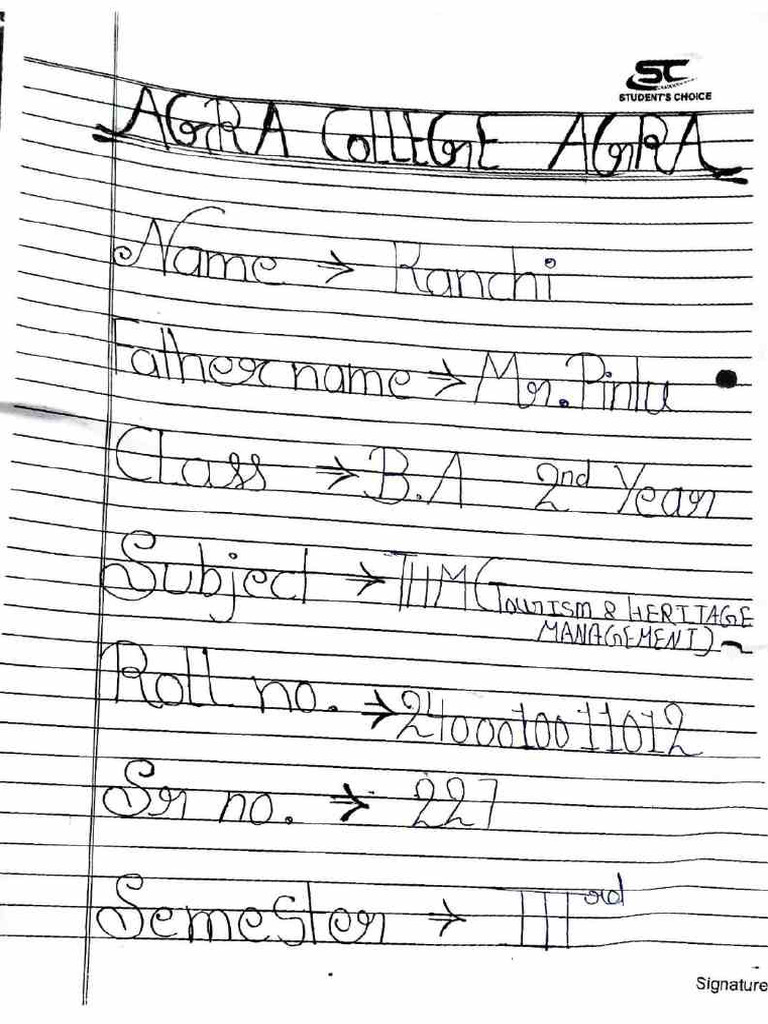 SC
STUDENT'S CHOICE
AGRA COLLEGE AGRA
Name → Kanchi
Father name → Mr. Pintu
Class → B.A 2nd Year
Subject → THM (Tourism & HERITAGE
MANAGEMENT)
Roll no. → 2400010011012
Sr no. → 227
Semester → IIIrd
Signature